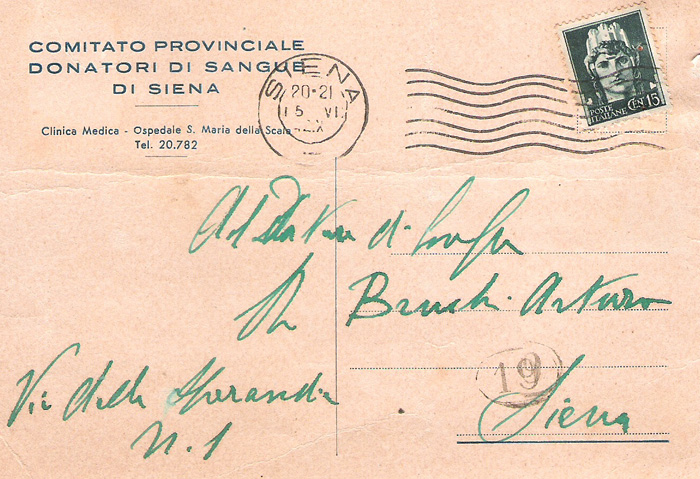 COMITATO PROVINCIALE
DONATORI DI SANGUE
DI SIENA
Clinica Medica - Ospedale S. Maria della Scala
Tel. 20.782
SIENA
20-21
15 VI
POSTE
ITALIANE
CEN 15
Al Donatore di Sangue
Bruschi Arturo
19
Siena
Via delle Sperandie
N. 1